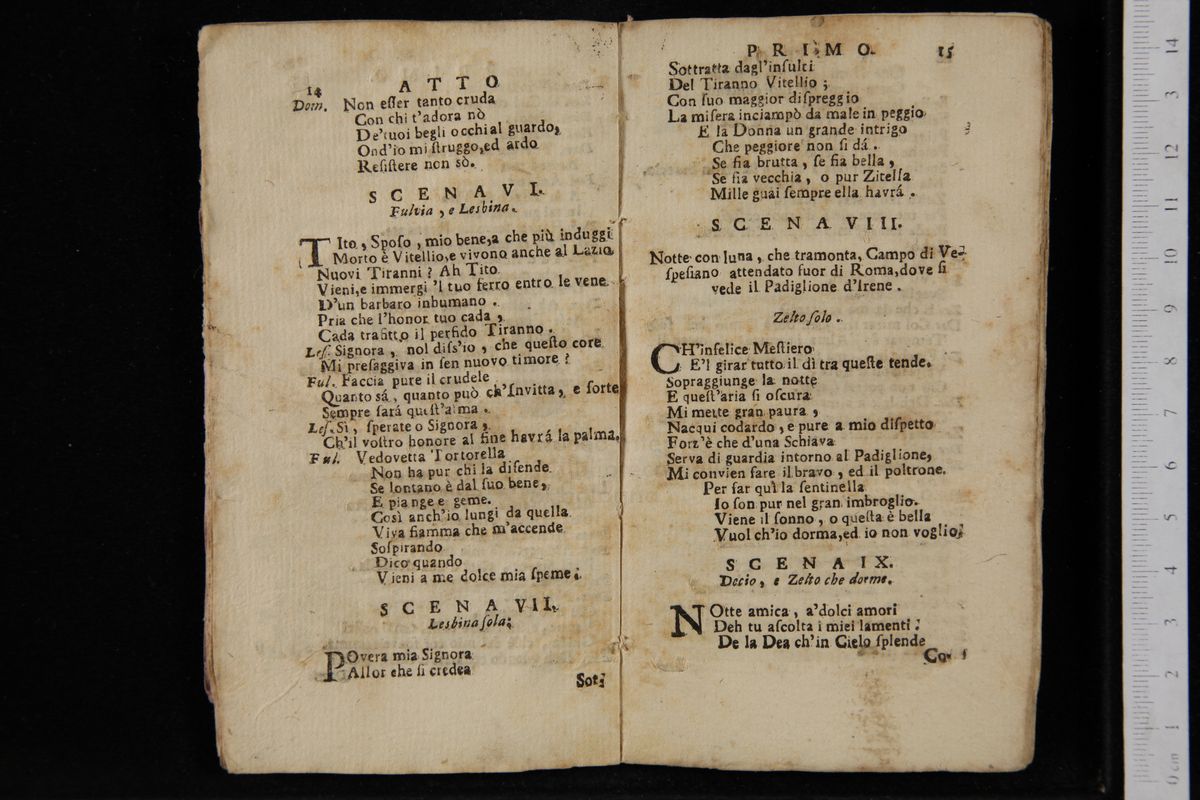 14 ATTO
Dom. Non eſſer tanto cruda
Con chi t'adora nò
De'tuoi begli occhi al guardo,
Ond'io mi ſtruggo,ed ardo
Reſiſtere non sò.
SCENA VI.
Fulvia, e Lesbina.
TIto, Spoſo, mio bene,a che più induggi
Morto è Vitellio,e vivono anche al Lazio
Nuovi Tiranni? Ah Tito
Vieni,e immergi 'l tuo ferro entro le vene
D'un barbaro inhumano.
Pria che l'honor tuo cada,
Cada trafitto il perfido Tiranno.
Leſ. Signora, nol diſs'io, che queſto core
Mi preſaggiva in ſen nuovo timore?
Ful. Faccia pure il crudele
Quanto sá, quanto può ch'Invitta, e forte
Sempre ſará queſt'alma.
Leſ. Sì, ſperate o Signora,
Ch'il voſtro honore al fine havrá la palma.
Ful. Vedovetta Tortorella
Non ha pur chi la difende
Se lontano è dal ſuo bene,
E piange e geme.
Così anch'io lungi da quella
Viva fiamma che m'accende
Soſpirando
Dico quando
Vieni a me dolce mia ſpeme?
SCENA VII.
Lesbina ſola.
POvera mia Signora
Allor che ſi credea
Sot-
PRIMO. 15
Sottratta dagl'inſulti
Del Tiranno Vitellio;
Con ſuo maggior diſpreggio
La miſera inciampò da male in peggio
E la Donna un grande intrigo
Che peggiore non ſi dá.
Se ſia brutta, ſe ſia bella,
Se ſia vecchia, o pur Zitella
Mille guai ſempre ella havrá.
SCENA VIII.
Notte con luna, che tramonta, Campo di Ve-
ſpeſiano attendato fuor di Roma,dove ſi
vede il Padiglione d'Irene.
Zelto ſolo.
CH'infelice Meſtiero
E'l girar tutto il dì tra queſte tende.
Sopraggiunge la notte
E queſt'aria ſi oſcura
Mi mette gran paura,
Nacqui codardo, e pure a mio diſpetto
Forz'è che d'una Schiava
Serva di guardia intorno al Padiglione,
Mi convien fare il bravo, ed il poltrone.
Per far quì la ſentinella
Io ſon pur nel gran imbroglio.
Viene il ſonno, o queſta è bella
Vuol ch'io dorma,ed io non voglio.
SCENA IX.
Decio, e Zelto che dorme.
NOtte amica, a'dolci amori
Deh tu aſcolta i miei lamenti:
De la Dea ch'in Cielo ſplende
Co-